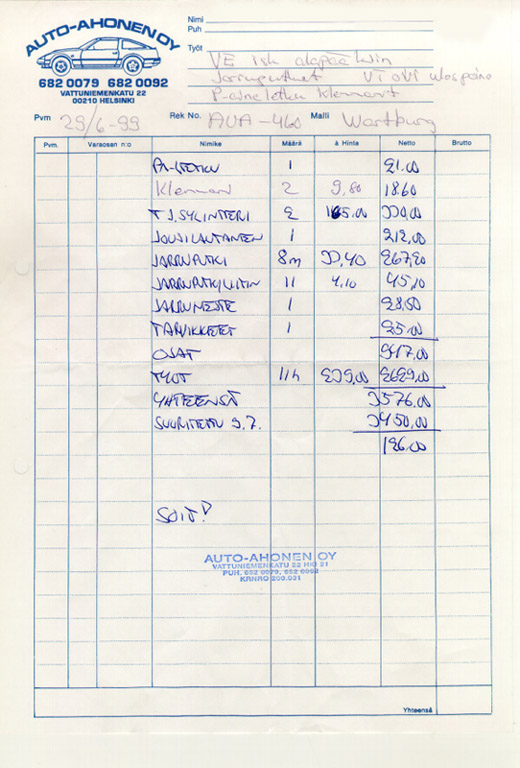 AUTO-AHONEN OY
682 0079 682 0092
VATTUNIEMENKATU 22
00210 HELSINKI
Nimi
Puh
Työt VE isk alapää kiin
Jarruputket VT OVI
P-aine letku Klemmarit
Pvm 29/6-99 Rek No. AUA-460 Malli Wartburg
Pvm. Varaosan n:o Nimike Määrä à Hinta Netto Brutto
PA-LETKU 1 21.00
Klemmari 2 9.80 18.60
TJ.SYLINTERI 2 165.00 330.00
JOUSILAUTANEN 1 212.00
JARRUPUTKI 8m 33,40 267,20
JARRUPUTKILIITIN 11 4.10 45,10
JARRUNESTE 1 28.50
TARVIKKEET 1 25.00
OSAT 947.00
TYÖT 11h 239.00 2629.00
YHTEENSÄ 3576.00
SUORITETTU 9.7. 3450.00
126.00
SOIT!
AUTO-AHONEN OY
VATTUNIEMENKATU 22 HKI 21
PUH. 682 0079, 682 0092
KRNRO 200.031
Yhteensä